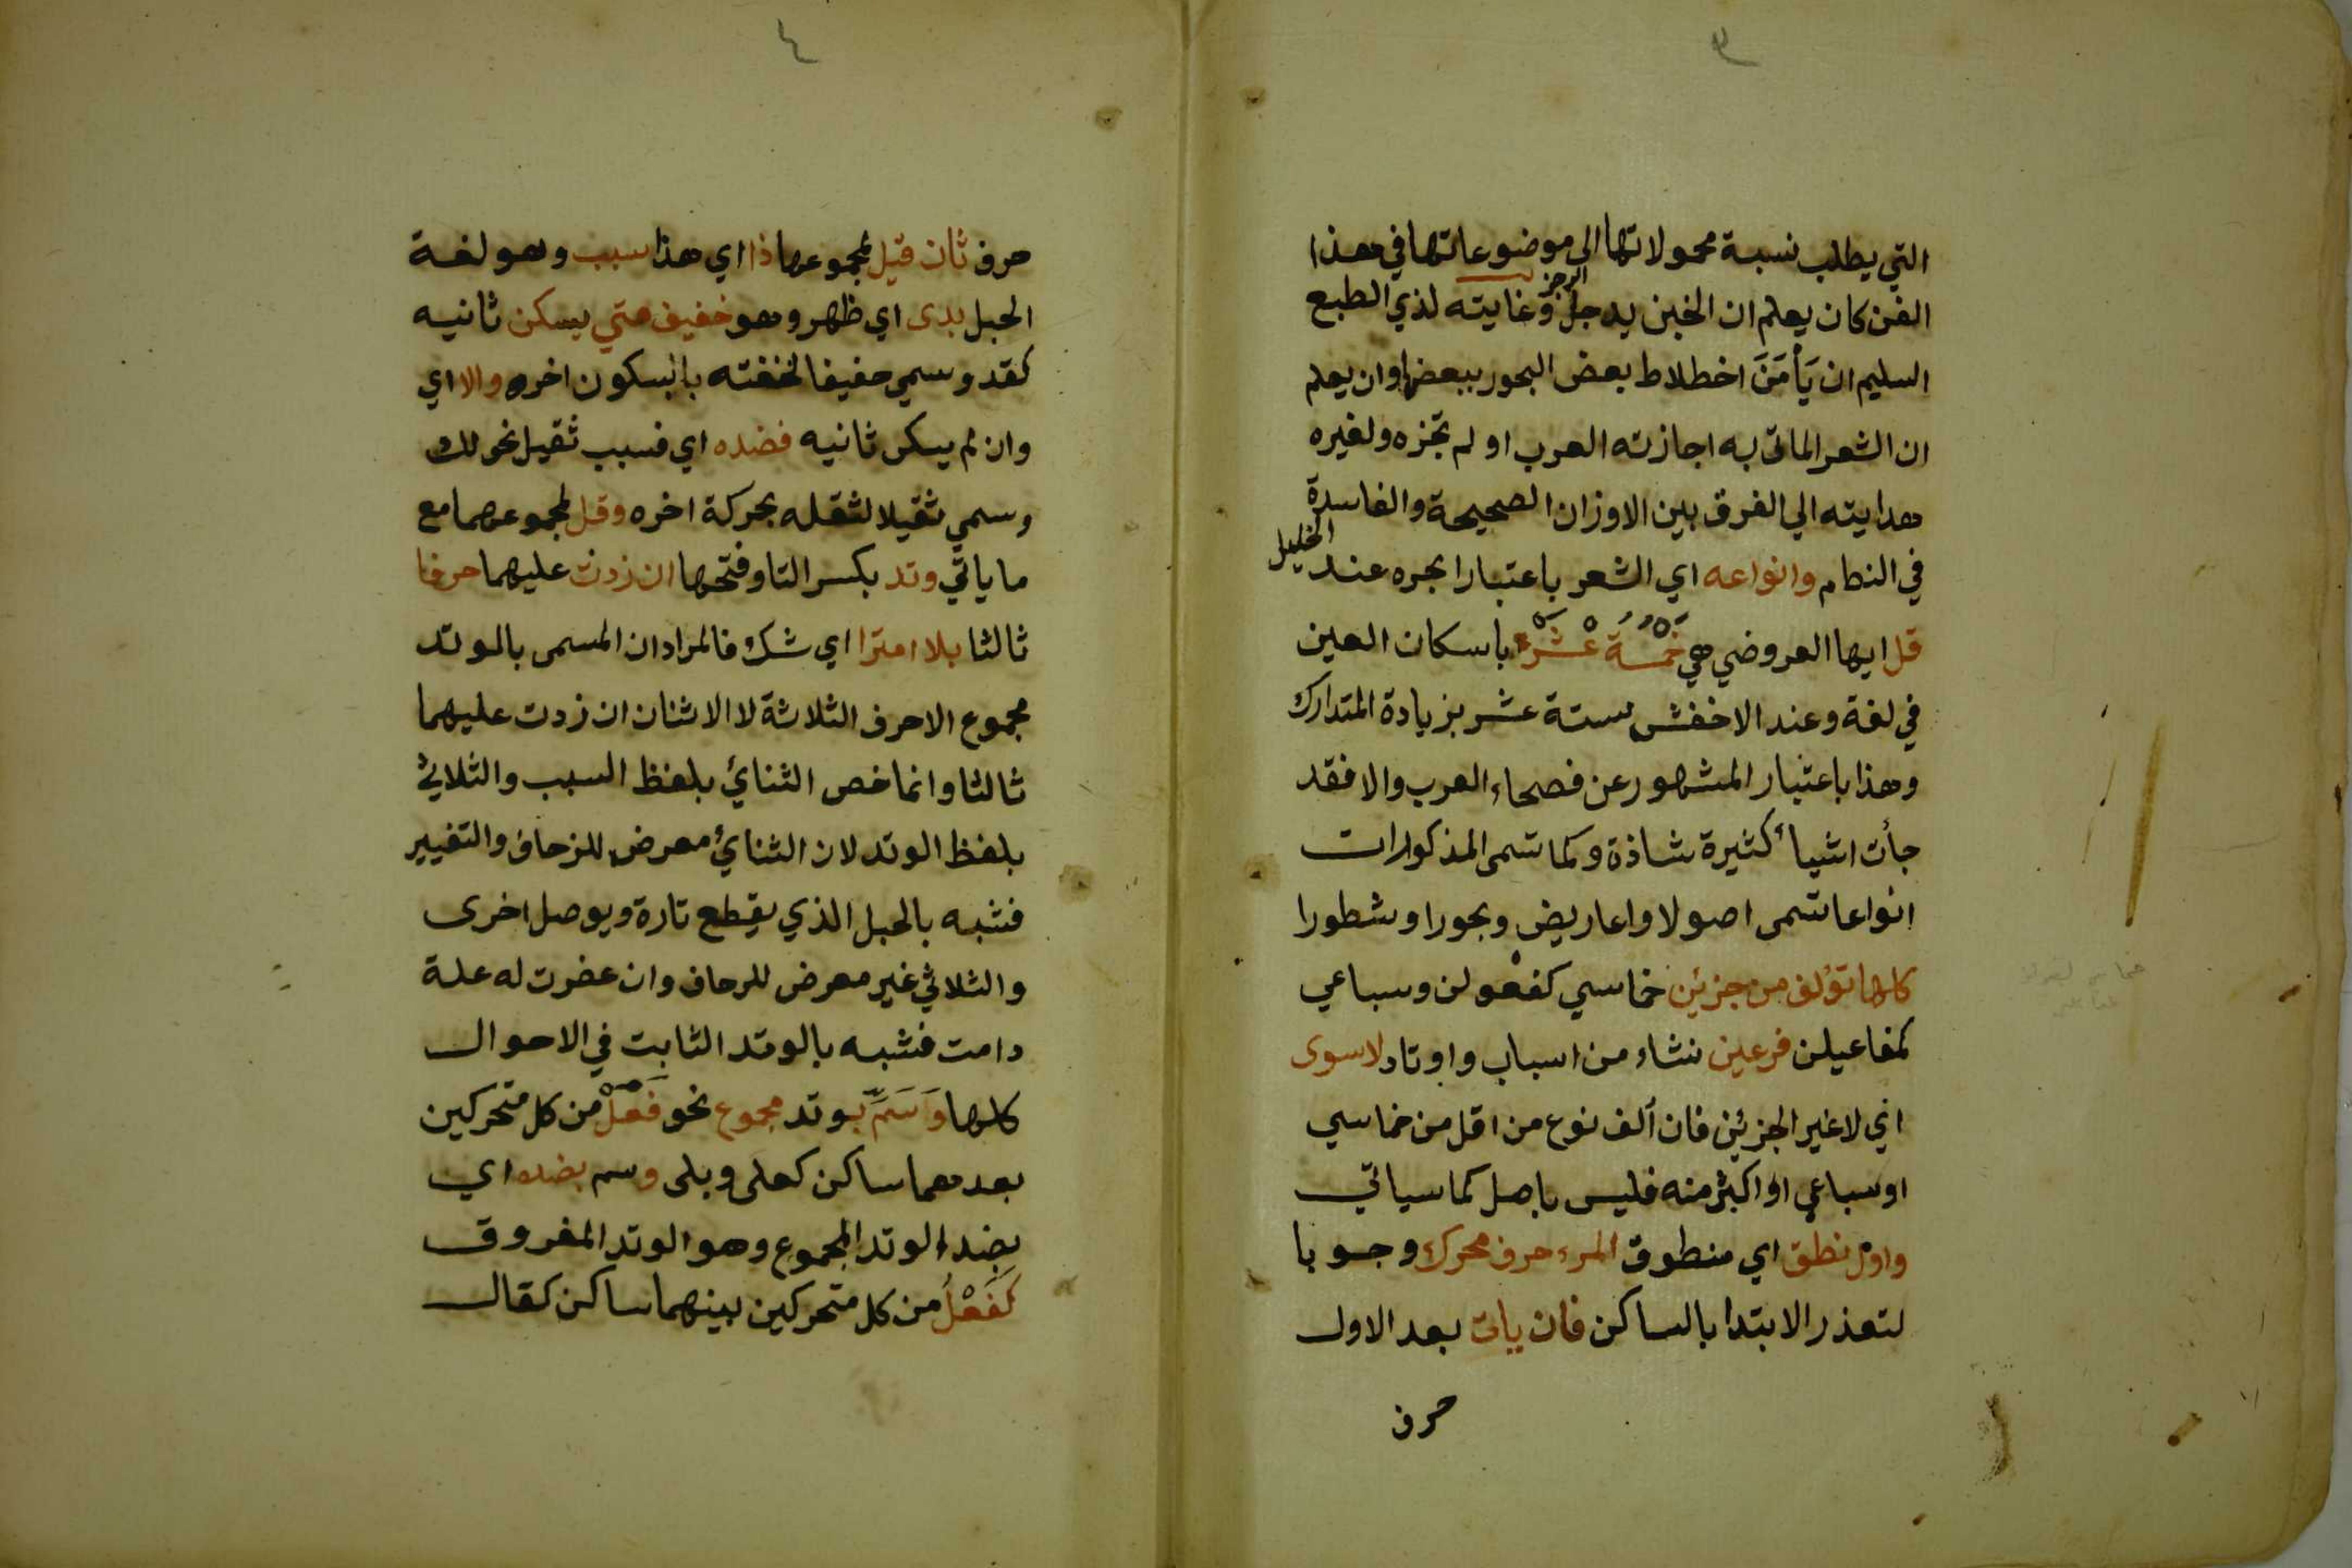 ٣
التي يطلب نسبة محمولاتها الى موضوعاتها في هذا
الفن كان يعلم ان الخبن يدخل الرجز وغايته لذي الطبع
السليم ان يَأْمَنَ اخطلاط بعض البحور ببعضها وان يعلم
ان الشعر الماتى به اجازته العرب او لم تجزه ولغيره
هدايته الي الفرق بين الاوزان الصحيحة والفاسدة
في النظام وانواعه اي الشعر باعتبار ابحره عند الخليل
قل ايها العروضي هي خَمْسَةُ عْشَرَ باسكان العين
في لغة وعند الاخفش ستة عشر بزيادة المتدارك
وهذا باعتبار المشهور عن فصحاء العرب والا فقد
جأت اشيأ كثيرة شاذة وكما تسمى المذكورات
انواعا تسمى اصولا واعاريض وبحورا وشطورا
كلها تؤلف من جزئين خماسي كفعولن وسباعي
كمفاعيلن فرعين نشاء من اسباب واوتاد لا سوى
اي لا غير الجزئين فان ألف نوع من اقل من خماسي
او سباعي او اكثر منه فليس باصل كما سياتي
واول نطق اي منطوق المرء حرف محرك وجوبا
لتعذر الابتدا بالساكن فان يات بعد الاول
حرف
٤
حرف ثان قيل لمجموعها ذا اي هذا سبب وهو لغة
الحبل بدى اي ظهر وهو خفيف متي يسكن ثانيه
كقد وسمي خفيفا لخفته بسكون اخره والا اي
وان لم يسكن ثانيه فضده اي فسبب ثقيل نحو لك
وسمي ثقيلا لثقله بحركة اخره وقل لمجموعهما مع
ما ياتي وتد بكسر التا وفتحها ان زدت عليهما حرفا
ثالثا بلا امترا اي شك فالمراد ان المسمى بالوتد
مجموع الاحرف الثلاثة لا الاثنان ان زدت عليهما
ثالثا وانما خص الثنائي بلفظ السبب والثلاثي
بلفظ الوتد لان الثنائي معرض للزحاف والتغيير
فشبه بالحبل الذي يقطع تارة ويوصل اخرى
والثلاثي غير معرض للزحاف وان عضرت له علة
دامت فشبه بالوتد الثابت في الاحوال
كلها وَسَمِّ بوتد مجموع نحو فَعَلْ من كل متحركين
بعدهما ساكن كعلى وبلى وسم بضده اي
بضد الوتد المجموع وهو الوتد المفروق
كَفَعْلُ من كل متحركين بينهما ساكن كقال